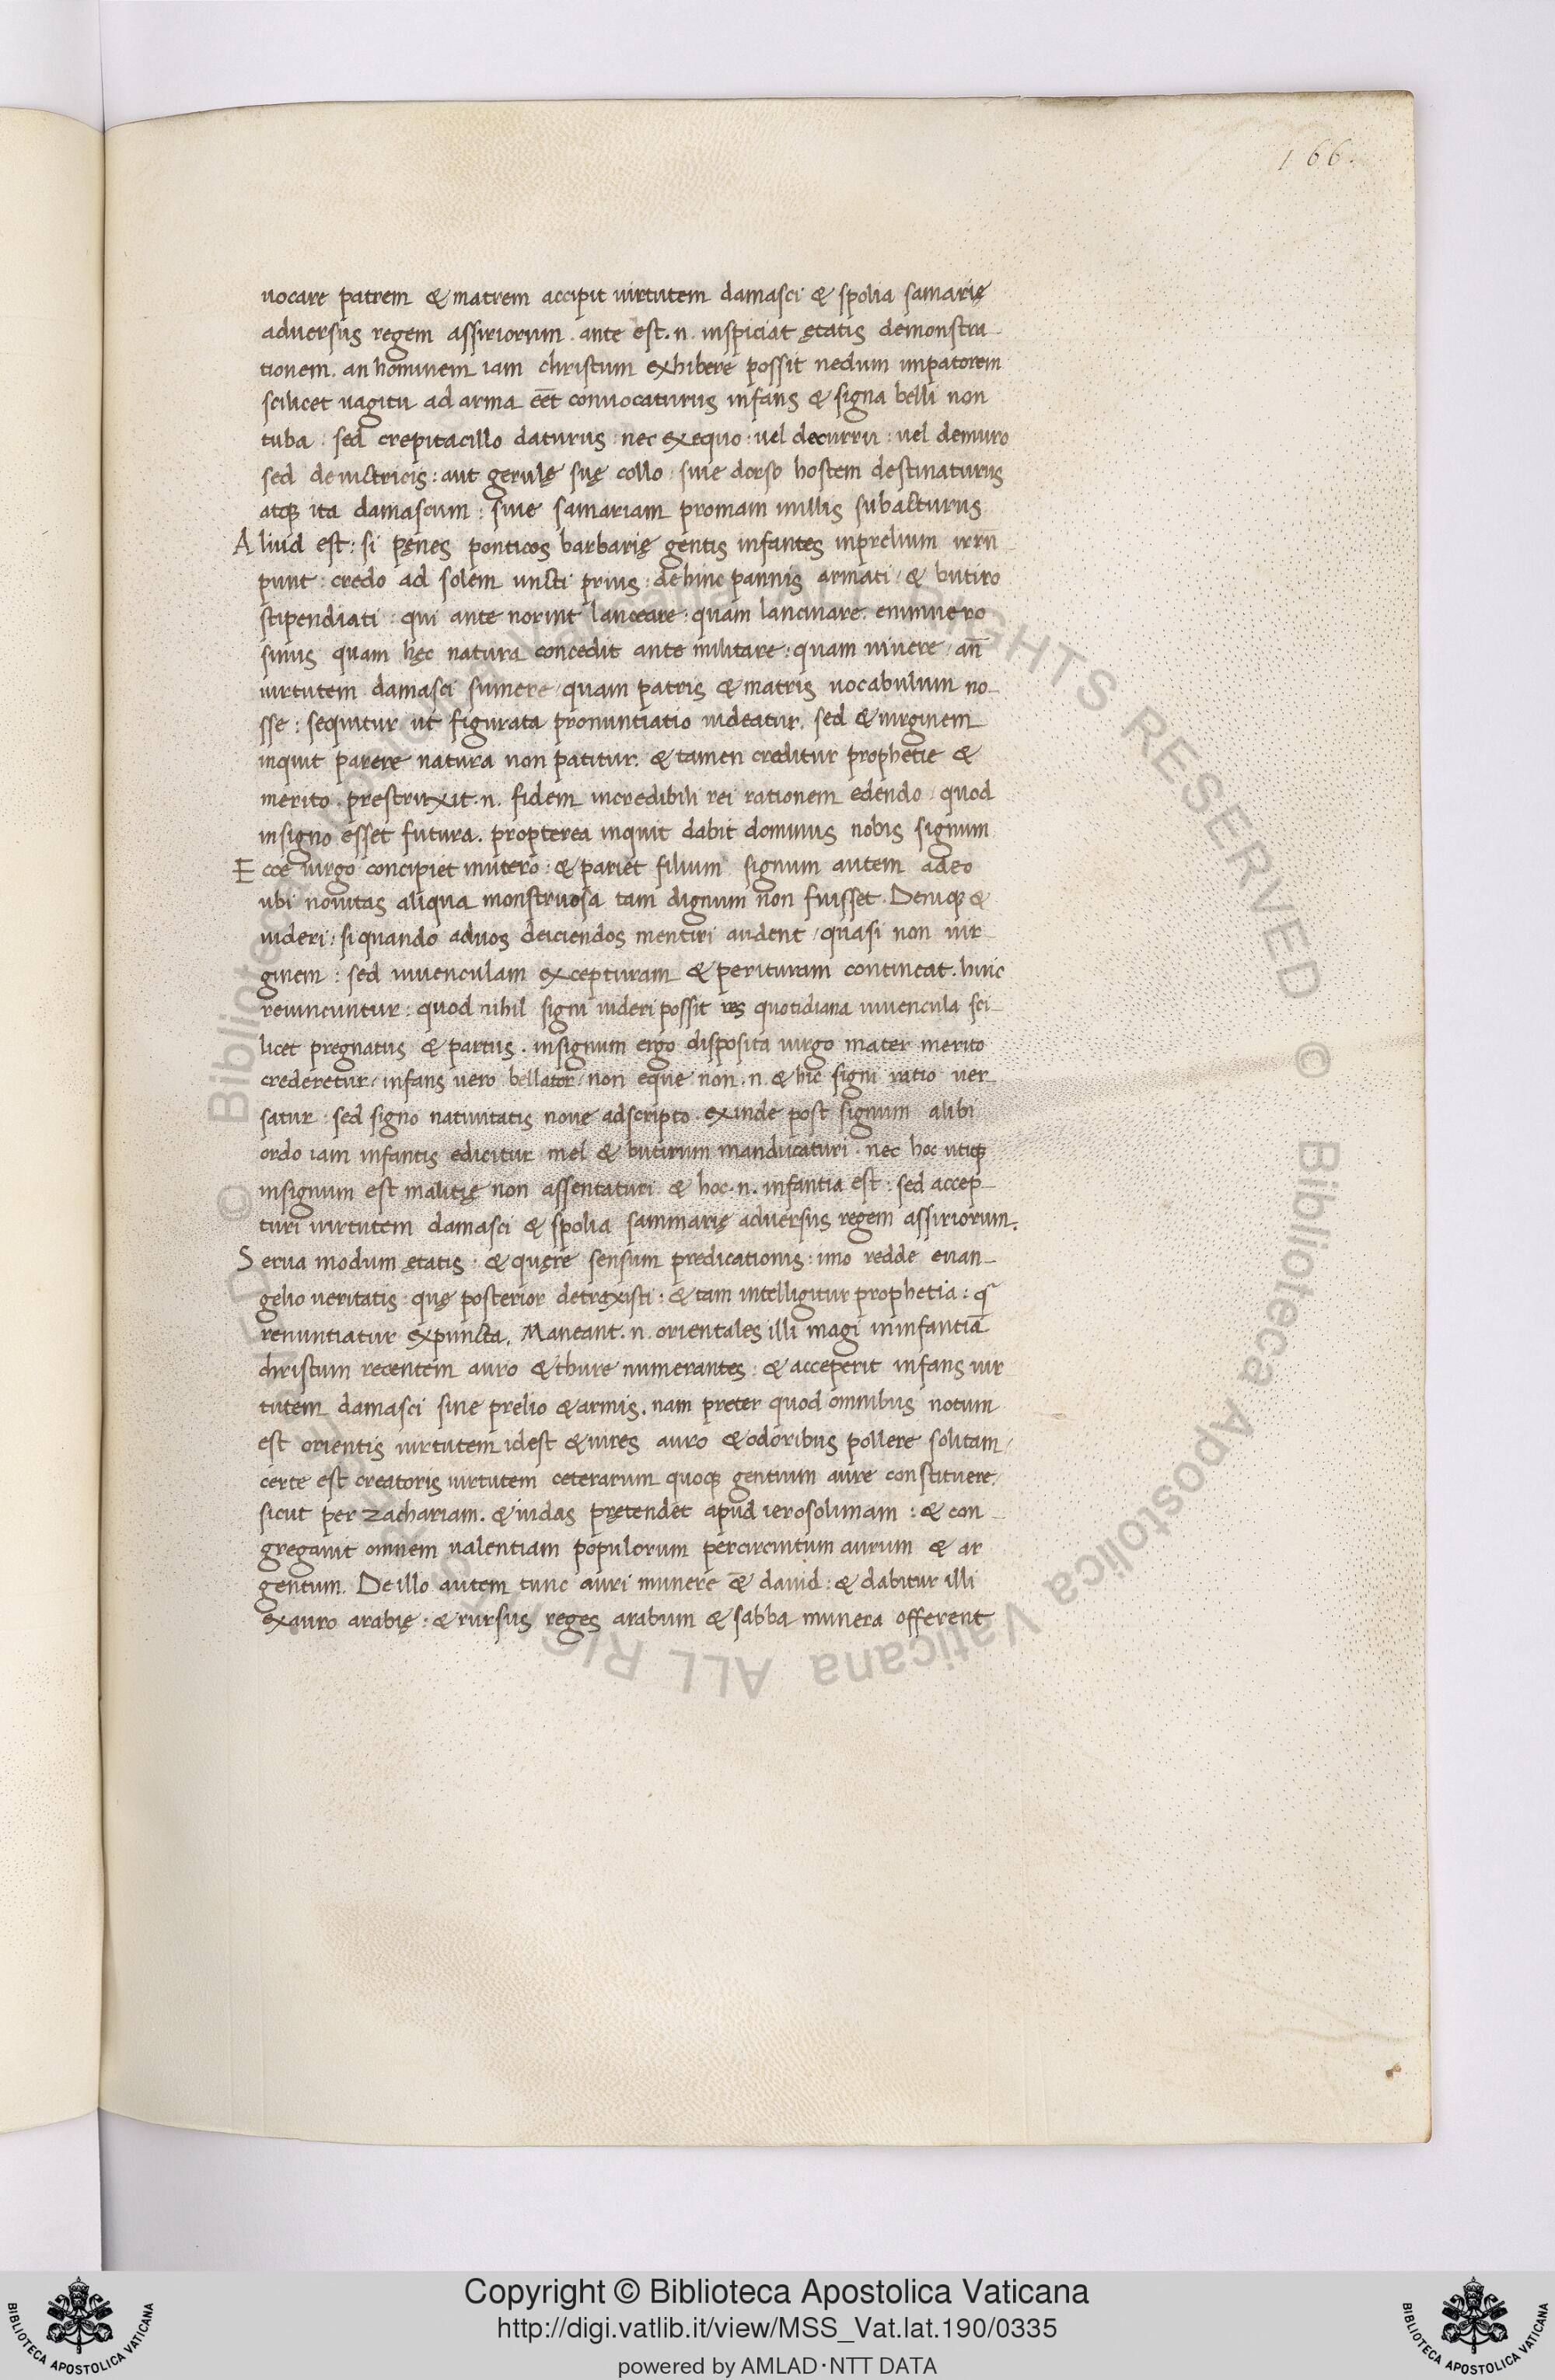 166.
uocare patrem & matrem accipit uirtutem damasci & spolia samarię
aduersus regem assiriorum . ante est . n . inspiciat ętatis demonstra-
tionem . an hominem iam christum exhibere possit nedum impatorem
scilicet uagitu ad arma eēt conuocaturus infans & signa belli non
tuba : sed crepitacillo daturus : nec exequo : uel decurru : uel demuro
sed de nictricis : aut gerulę suę collo siue dorso hostem destinaturus
atqꝫ ita damascum : siue samariam promam millis subacturus
Aliud est : si pęnes ponticos barbarię gentis infantes inprelium irrū-
punt : credo ad solem uncti prius : dehinc pannis armati / & butiro
stipendiati : qui ante norint lanceare : quam lancinare . enimuero
sinus quam hęc natura concedit ante militare : quam uiuere / an̄
uirtutem damasci sumere / quam patris & matris uocabulum no-
sse : sequitur ut figurata pronuntiatio uideatur . sed & uirginem
inquit parere natura non patitur . & tamen creditur prophetie &
merito . prestruxit . n . fidem incredibili rei rationem edendo / quod
insigno esset futura . propterea inquit dabit dominus nobis signum
Ecce uirgo concipiet inutero : & pariet filium signum autem adeo
ubi nouitas aliqua monstruosa tam dignum non fuisset . Deniqꝫ &
uideri : siquando aduos deiciendos mentiri audent / quasi non uir-
ginem : sed iuuenculam excepturam & perituram contineat . hinc
reuincuntur : quod nihil signi uideri possit res quotidiana iuuencula sci-
licet pregnatus & partus . insignum ergo disposita uirgo mater merito
crederetur / infans uero bellator / non eque non . n . & hic signi ratio uer-
satur sed signo natiuitatis noue adscripto . exinde post signum alibi
ordo iam infantis edicitur mel & butirum manducaturi . nec hoc utiqꝫ
insignum est malitię non assentaturi & hoc . n . infantia est : sed accep-
turi uirtutem damasci & spolia sammarię aduersus regem assiriorum .
Serua modum ętatis . & quęre sensum predicationis : imo redde euan-
gelio ueritatis . quę posterior detraxisti : & tam intelligitur prophetia : q̄
renuntiatur expuncta . Maneant . n . orientales illi magi ininfantiā
christum recentem auro & thure numerantes : & acceperit infans uir
tutem damasci sine prelio & armis . nam preter quod omnibus notum
est orientis uirtutem idest & uires auro & odoribus pollere solitam /
certe est creatoris uirtutem ceterarum quoqꝫ gentium aure constituere /
sicut per zachariam . & iudas pretendet apud ierosolimam : & con-
gregauit omnem ualentiam populorum percircuitum aurum & ar
gentum . De illo autem tunc auri munere & dauid : & dabitur illi
exauro arabię : & rursus reges arabum & sabba munera offerent
© Biblioteca Apostolica Vaticana ALL RIGHTS RESERVED
Copyright © Biblioteca Apostolica Vaticana
http://digi.vatlib.it/view/MSS_Vat.lat.190/0335
powered by AMLAD·NTT DATA
BIBLIOTECA APOSTOLICA VATICANA
BIBLIOTECA APOSTOLICA VATICANA